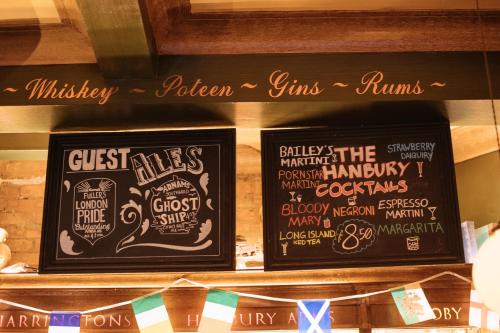 ~ Whiskey ~ Poteen ~ Gins ~ Rums ~
GUEST ALES
FULLER'S
LONDON
PRIDE
Outstanding
ADNAMS
SOUTHWOLD
GHOST
SHIP
BAILEY'S
MARTINI
PORNSTAR
MARTINI
BLOODY
MARY
LONG ISLAND
ICED TEA
THE
HANBURY
COCKTAILS
NEGRONI
£8.50
STRAWBERRY
DAIQUIRY
ESPRESSO
MARTINI
MARGARITA
HARRINGTONS
HANBURY ARMS
OBY